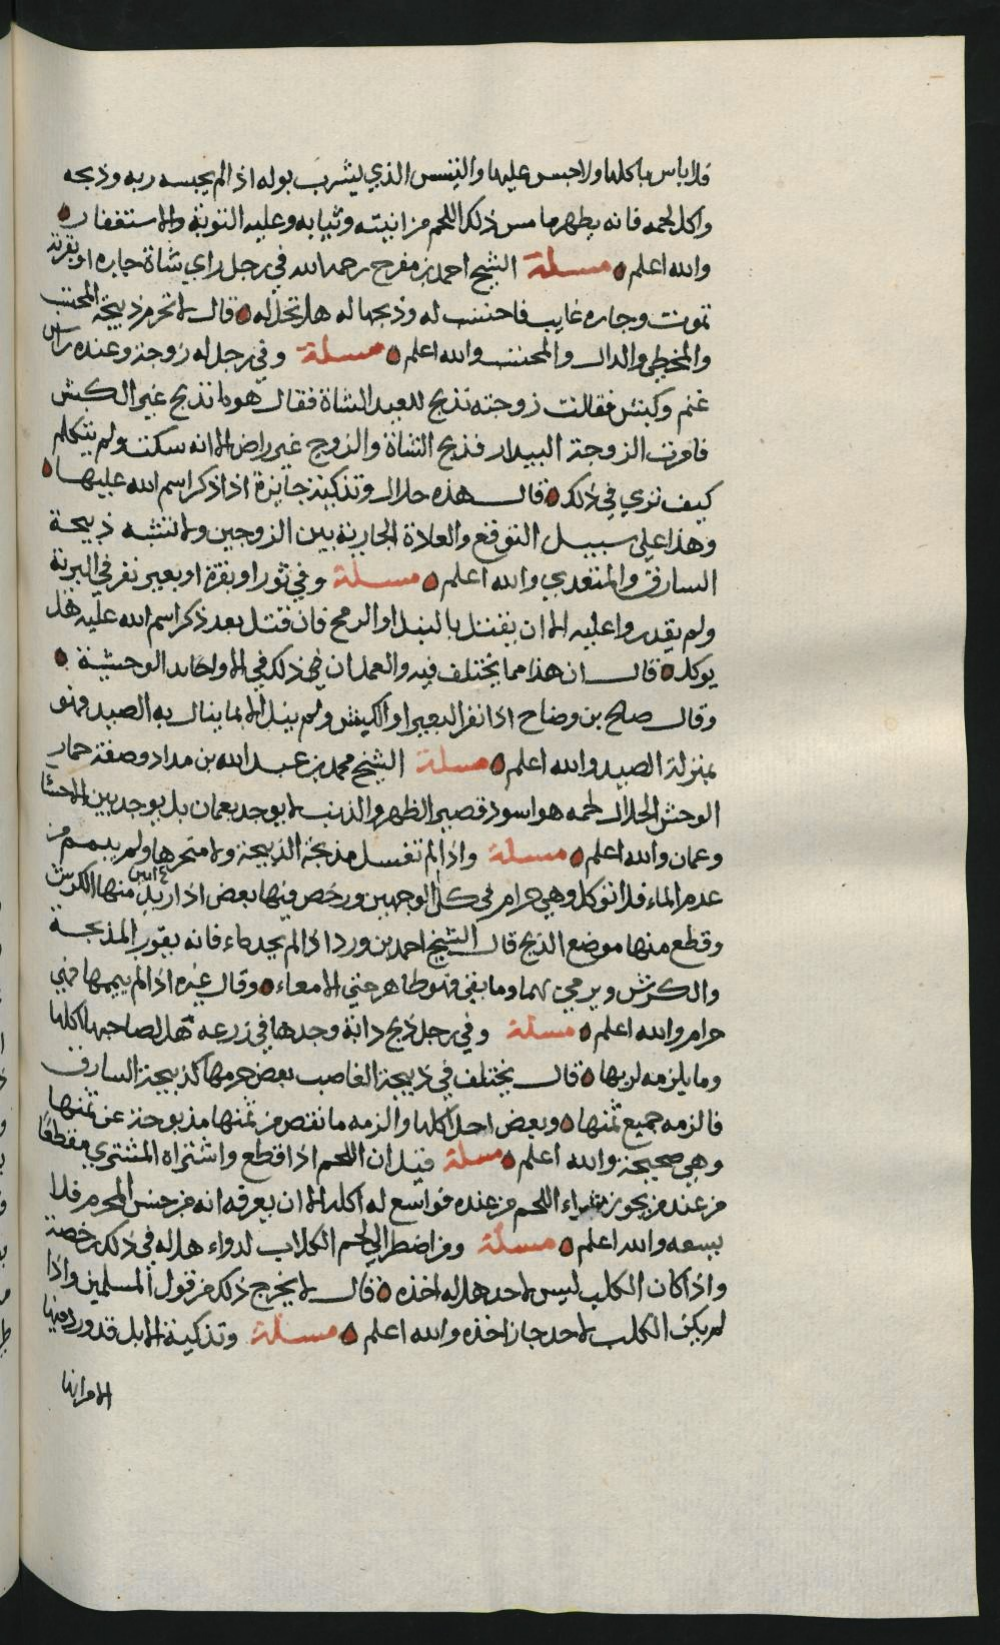 فلا باس باكلها ولا حبس عليها والتيس الذي يشرب بوله اذا لم يحبسه ربه وذبحه
واكل لحمه فانه يطهر ما مس ذلك اللحم من انيته وثيابه وعليه التوبة والاستغفار
والله اعلم مسئلة الشيخ احمد بن مفرج رحمه الله في رجل راي شاة جاره او بقرته
تموت وجاره غايب فاحتسب له وذبحها له هل تحل له قال لا تحرم ذبيحة المحتسب
والمخطي والدال والمحتسب والله اعلم مسئلة وفي رجل له زوجة وعنده راس
غنم وكبش فقالت زوجته نذبح للعيد الشاة فقال هو لا نذبح غير الكبش
فامرت الزوجة البيدار فذبح الشاة والزوج غير راض الا انه سكت ولم يتكلم
كيف تري في ذلك قال هذه حلال وتذكيته جايزة اذا ذكر اسم الله عليها
وهذا علي سبيل التوقع والعادة الجارية بين الزوجين ولا تشبه ذبيحة
السارق والمتعدي والله اعلم مسئلة وفي ثور او بقرة او بعير نفر في البرية
ولم يقدروا عليه الا ان يقتل بالنبل او الرمح فان قتل بعد ذكر اسم الله عليه هل
يوكل قال ان هذا مما يختلف فيه والعمل ان في ذلك في الاوابد الوحشية
وقال صلح بن وضاح اذا نفر البعير او الكبش ولم ينل الا بما ينال به الصيد فهو
بمنزلة الصيد والله اعلم مسئلة الشيخ محمد بن عبد الله بن مداد وصفة حمار
الوحش الحلال لحمه هو اسود قصير الظهر والذنب لا يوجد بعمان بل يوجد بين الاحسا
وعمان والله اعلم مسئلة واذا لم تغسل مذبحة الذبيحة ولا منحرها ولم ييمم من
عدم الماء فلا توكل وهي حرام في كل الوجهين ورخص فيها بعض اذا منها الكرش
وقطع منها موضع الذبح قال الشيخ احمد بن ورد اذا لم يجد ماء فانه يقور المذبحة
والكرش ويرمي بهما وما بقي فهو طاهر حتي الامعاء وقال غيره اذا لم ييممها فهي
حرام والله اعلم مسئلة وفي رجل ذبح دابة وجدها في زرعه هل لصاحبها اكلها
وما يلزمه لربها قال يختلف في ذبيحة الغاصب بعض حرمها كذبيحة السارق
فالزمه جميع ثمنها وبعض احل اكلها والزمه ما نقص من ثمنها مذبوحة عن ثمنها
وهي صحيحة والله اعلم مسئلة قيل ان اللحم اذا قطع واشتراه المشتري مقطعا
من عند من يجوز شراء اللحم من عنده فواسع له اكله الا ان يعرفه انه من جنس المحرم فلا
يسعه والله اعلم مسئلة ومن اضطر الي لحم الكلاب لدواء هل له في ذلك رخصة
واذا كان الكلب ليس لاحد هل له اخذه قال لا يخرج ذلك من قول المسلمين واذا
لم يكن الكلب لاحد جاز اخذه والله اعلم مسئلة وتذكية الابل قد ورد فيها